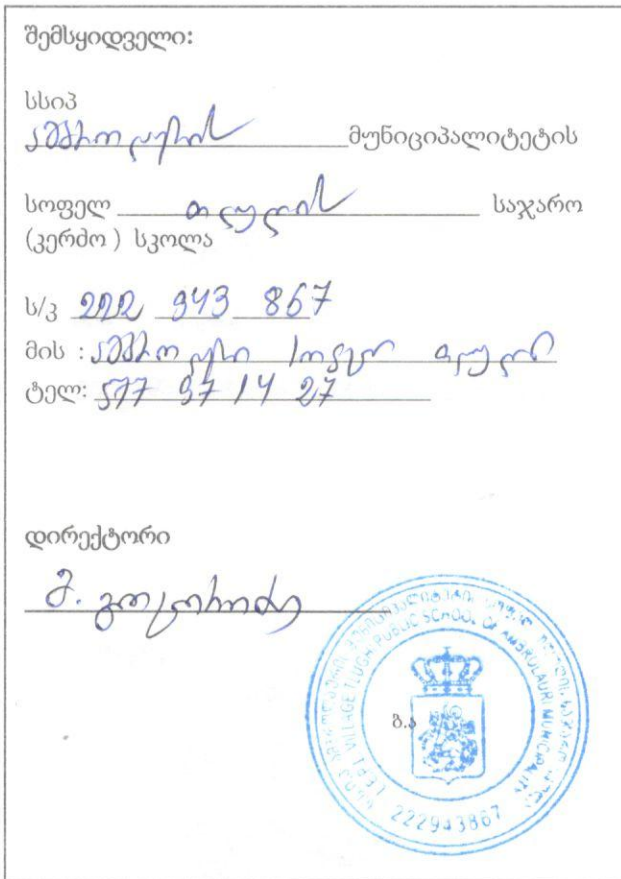 შემსყიდველი:
სსიპ
ამბროლაურის მუნიციპალიტეტის
სოფელ თლუღის საჯარო
(კერძო ) სკოლა
ს/კ 222 943 867
მის : ამბროლაური სოფელი თლუღი
ტელ: 577 97 14 27
დირექტორი
მ.
ბ.ა
LEPL VILLAGE TLUGHI PUBLIC SCHOOL OF AMBROLAURI MUNICIPALITY
222943867